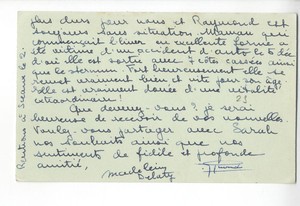 plus durs pour nous et Raymond est
toujours sans situation. Maman qui
commençait l'hiver en excellente forme a
été victime d'un accident d'auto le 16 Xe
d'où elle est sortie avec 7 côtes cassées ainsi
que le sternum. Fort heureusement elle se
remet vraiment bien et vite pour son âge
Elle est vraiment douée d'une vitalité
extraordinaire!
83
Que devenez-vous? je serai
heureuse de recevoir de vos nouvelles.
Voulez vous partager avec Sarah
nos souhaits ainsi que nos
sentiments de fidèle et profonde
amitié,
Madeleine
Delaty
à Sceaux le 2.